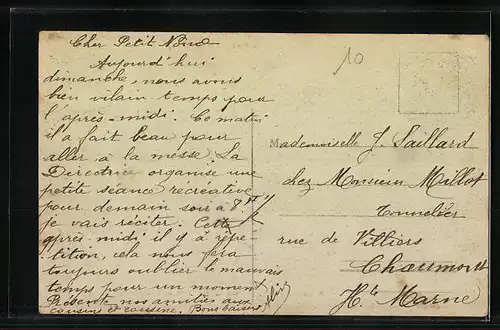 Cher Petit
Aujourd'hui
dimanche, nous avons
bien vilain temps pour
l'après-midi. Ce matin
il a fait beau pour
aller à la messe. La
Directrice organise une
petite séance récréative
pour demain soir à 8h ½
je vais réciter. Cette
après midi il y à répé-
tition, cela nous fera
toujours oublier le mauvais
temps pour un moment
Présente nos amitiés aux
cousins et cousine. Bons baisers
10
Mademoiselle J. Saillard
chez Monsieur Millot
Tonnelier
rue de Villiers
Chaumont
Hte Marne